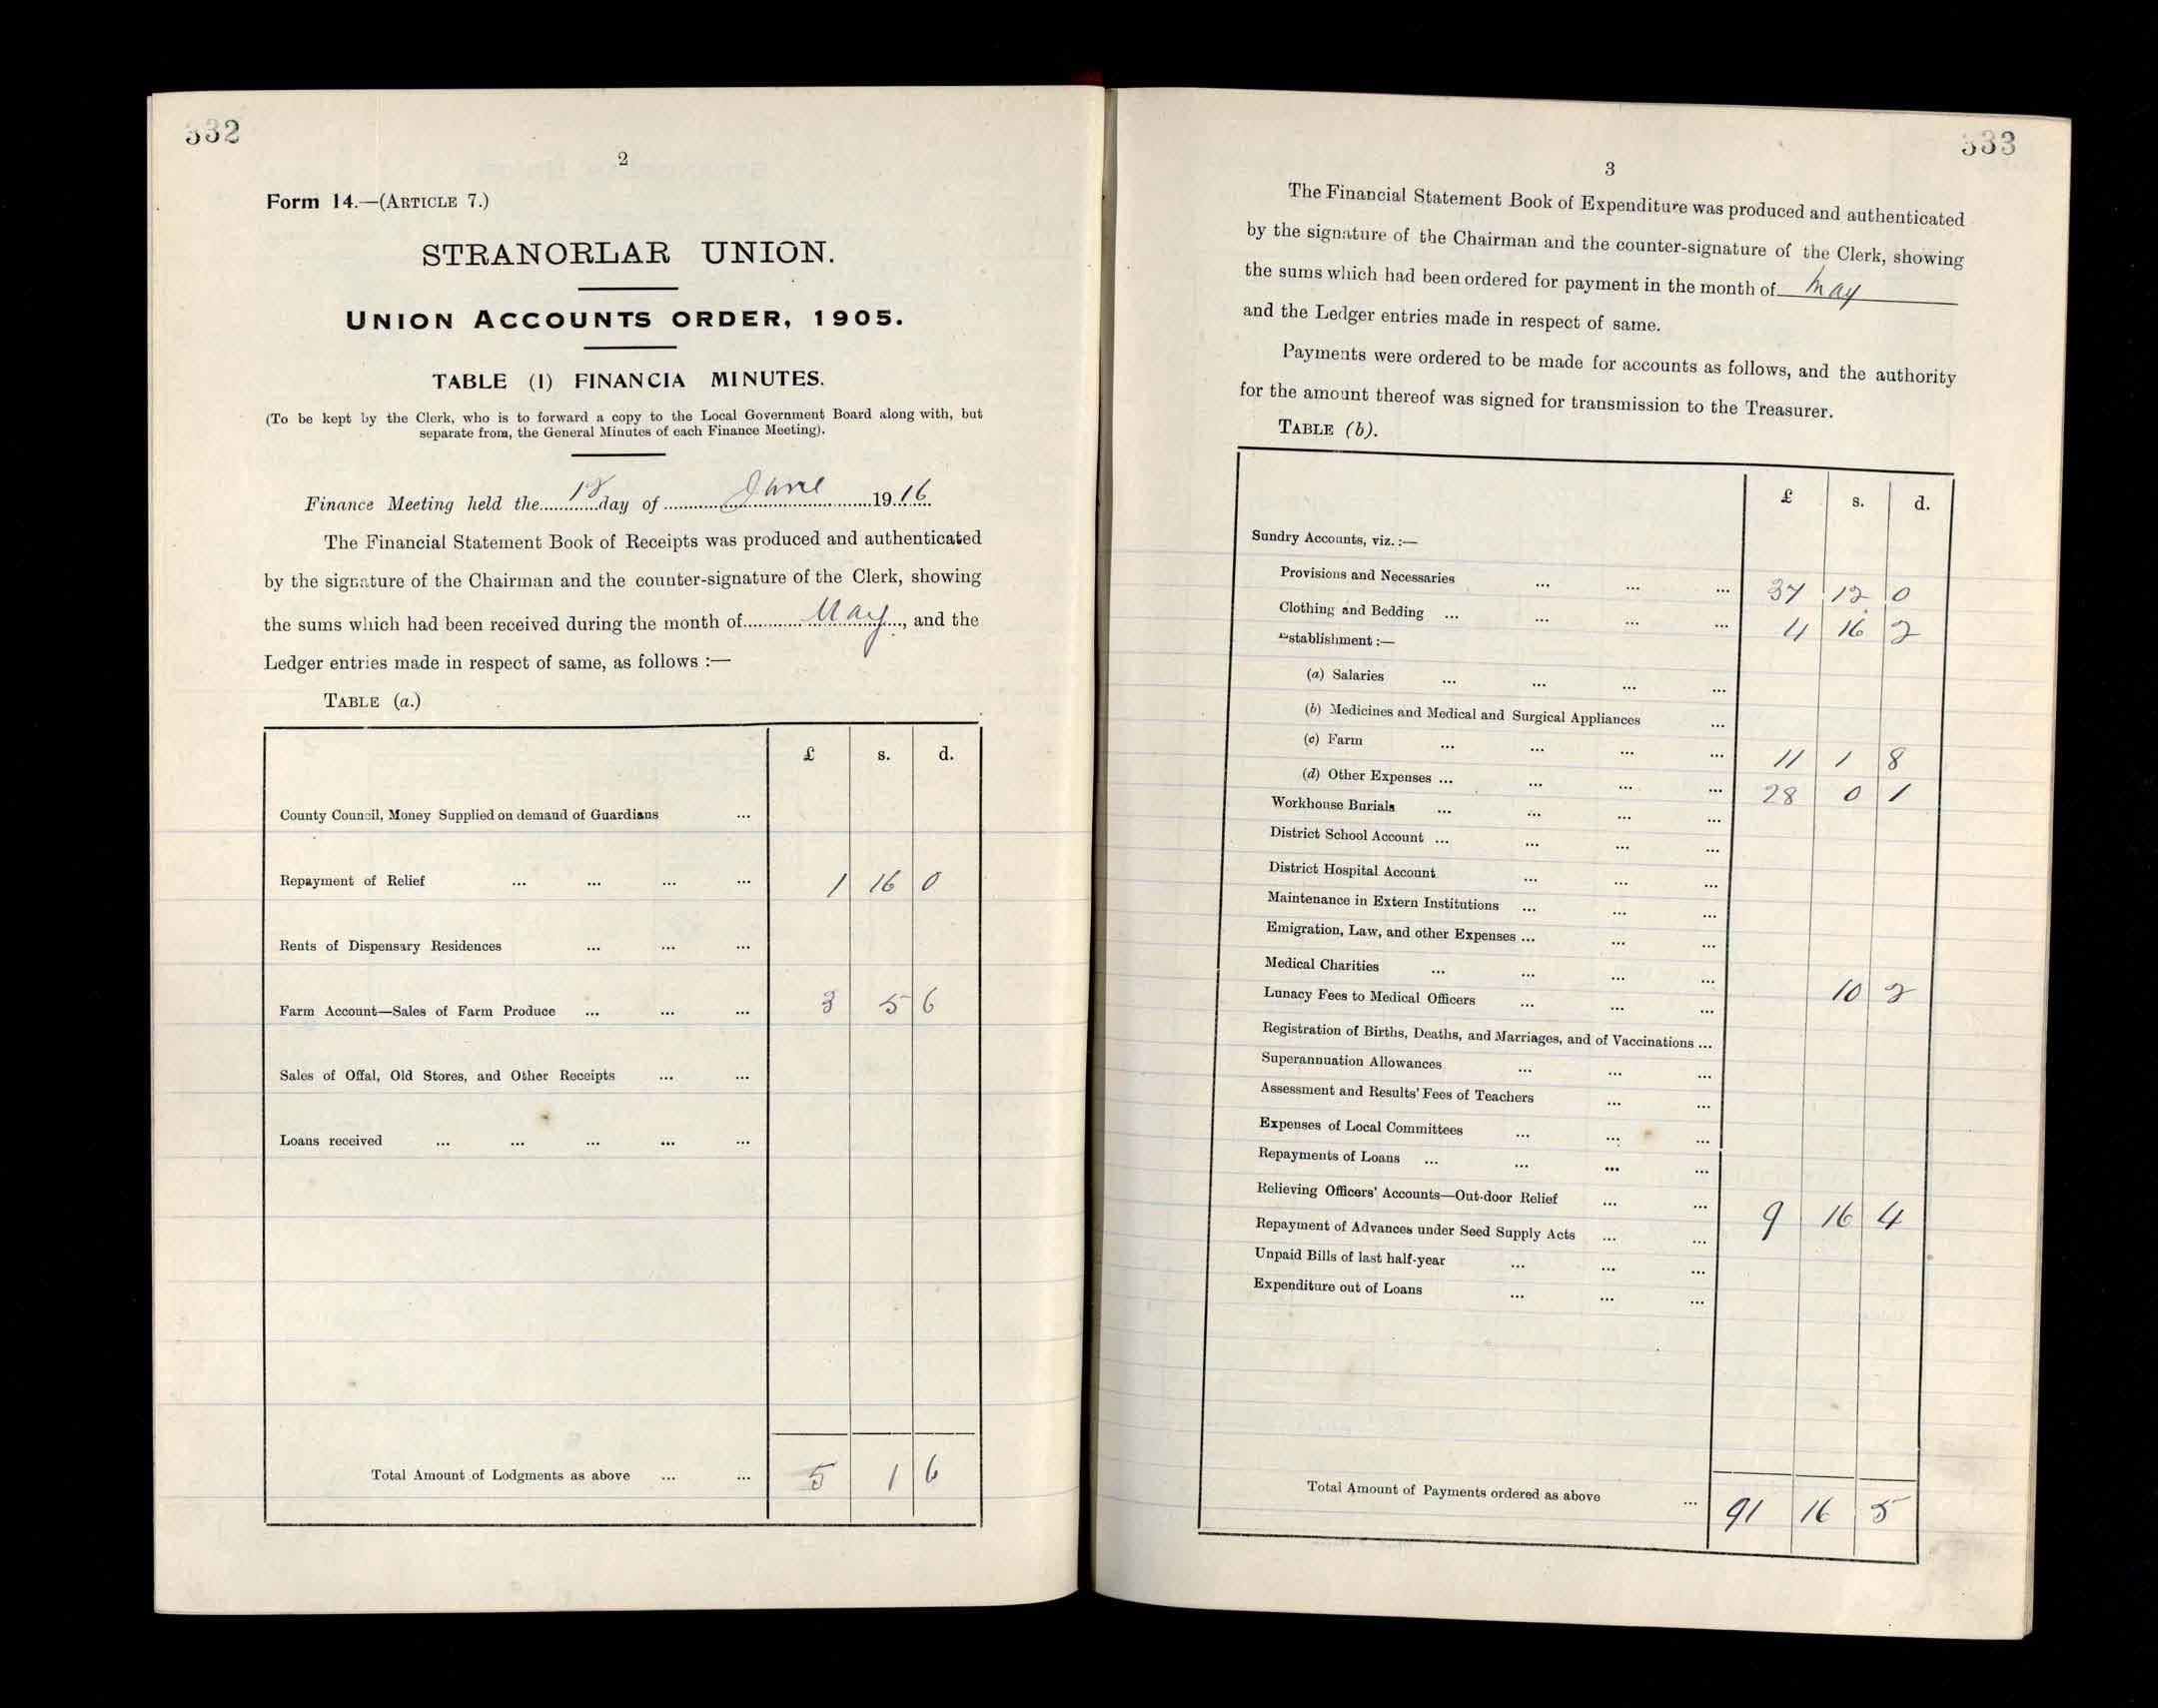 332
2
Form 14.—(ARTICLE 7.)
STRANORLAR UNION.
UNION ACCOUNTS ORDER, 1905.
TABLE (1) FINANCIA MINUTES.
(To be kept by the Clerk, who is to forward a copy to the Local Government Board along with, but
separate from, the General Minutes of each Finance Meeting).
Finance Meeting held the 12 day of June 1916
The Financial Statement Book of Receipts was produced and authenticated
by the signature of the Chairman and the counter-signature of the Clerk, showing
the sums which had been received during the month of May, and the
Ledger entries made in respect of same, as follows :—
TABLE (a.)
£ s. d.
County Council, Money Supplied on demand of Guardians ...
Repayment of Relief ... ... ... ... 1 16 0
Rents of Dispensary Residences ... ... ...
Farm Account—Sales of Farm Produce ... ... ... 3 5 6
Sales of Offal, Old Stores, and Other Receipts ... ...
Loans received ... ... ... ... ...
Total Amount of Lodgments as above ... ... 5 1 6
333
3
The Financial Statement Book of Expenditure was produced and authenticated
by the signature of the Chairman and the counter-signature of the Clerk, showing
the sums which had been ordered for payment in the month of May
and the Ledger entries made in respect of same.
Payments were ordered to be made for accounts as follows, and the authority
for the amount thereof was signed for transmission to the Treasurer.
TABLE (b).
£ s. d.
Sundry Accounts, viz. :—
Provisions and Necessaries ... ... ... 37 12 0
Clothing and Bedding ... ... ... ... 4 16 2
Establishment :—
(a) Salaries ... ... ... ...
(b) Medicines and Medical and Surgical Appliances ...
(c) Farm ... ... ... ... 11 1 8
(d) Other Expenses ... ... ... ... 28 0 1
Workhouse Burials ... ... ... ...
District School Account ... ... ... ...
District Hospital Account ... ... ...
Maintenance in Extern Institutions ... ... ...
Emigration, Law, and other Expenses ... ... ...
Medical Charities ... ... ... ... 10 2
Lunacy Fees to Medical Officers ... ... ...
Registration of Births, Deaths, and Marriages, and of Vaccinations ...
Superannuation Allowances ... ... ...
Assessment and Results' Fees of Teachers ... ...
Expenses of Local Committees ... ... ...
Repayments of Loans ... ... ... ...
Relieving Officers' Accounts—Out-door Relief ... ... 9 16 4
Repayment of Advances under Seed Supply Acts ... ...
Unpaid Bills of last half-year ... ... ...
Expenditure out of Loans ... ... ...
Total Amount of Payments ordered as above ... 91 16 5